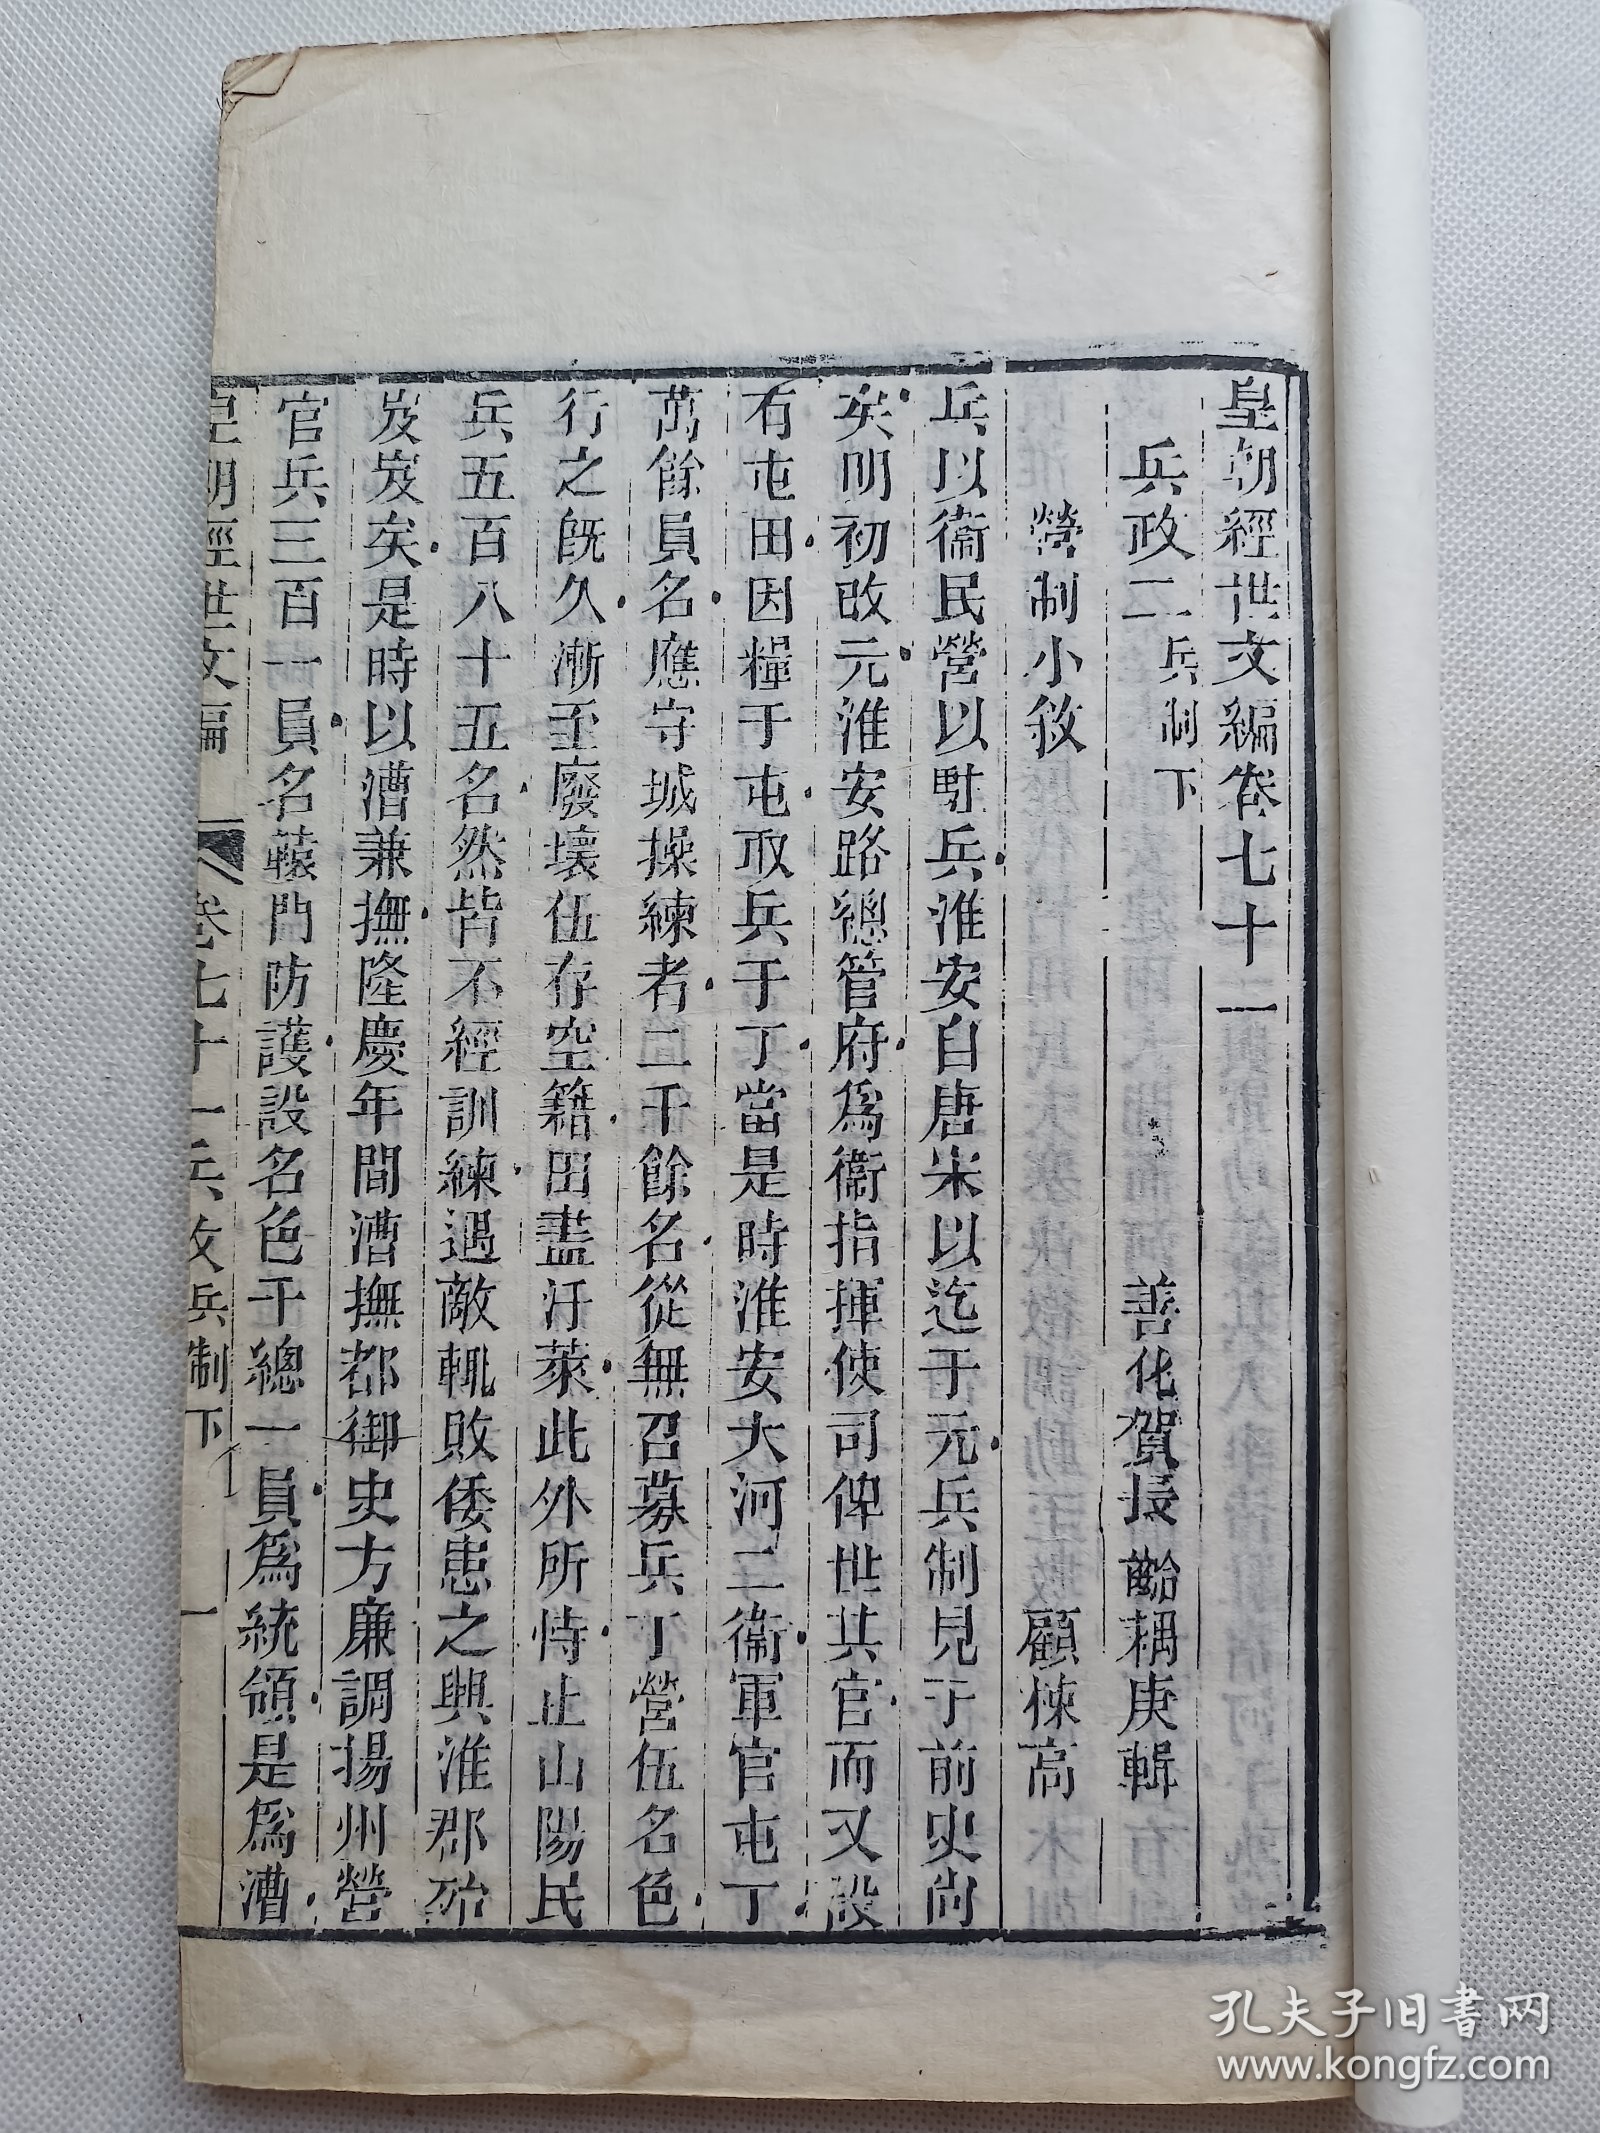 皇朝經世文編卷七十一
兵政二兵制下
善化賀長齡耦庚輯
營制小敘
顧棟高
兵以衞民營以駐兵淮安自唐宋以迄于元兵制見于前史尚
矣明初改元淮安路總管府爲衞指揮使司俾世其官而又設
有屯田因糧于屯取兵于丁當是時淮安大河二衞軍官屯丁
萬餘員名應守城操練者二千餘名從無召募兵丁營伍名色
行之旣久漸至廢壞伍存空籍田盡汙萊此外所恃止山陽民
兵五百八十五名然皆不經訓練遇敵輒敗倭患之興淮郡殆
岌岌矣是時以漕兼撫隆慶年間漕撫都御史方廉調揚州營
官兵三百一員名轅門防護設名色千總一員爲統領是爲漕
皇朝經世文編
卷七十一兵政兵制下
一
孔夫子旧书网
www.kongfz.com